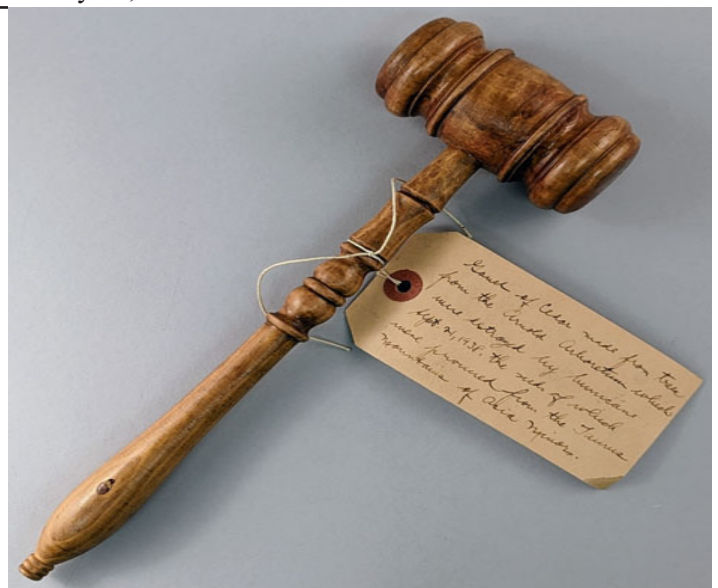 Gavel of Cedar made from trees
from the Arnold Arboretum which
were destroyed by hurricane
Sept 21, 1938. the seeds of which
were procured from the Taurus
Mountains of Asia Minor.